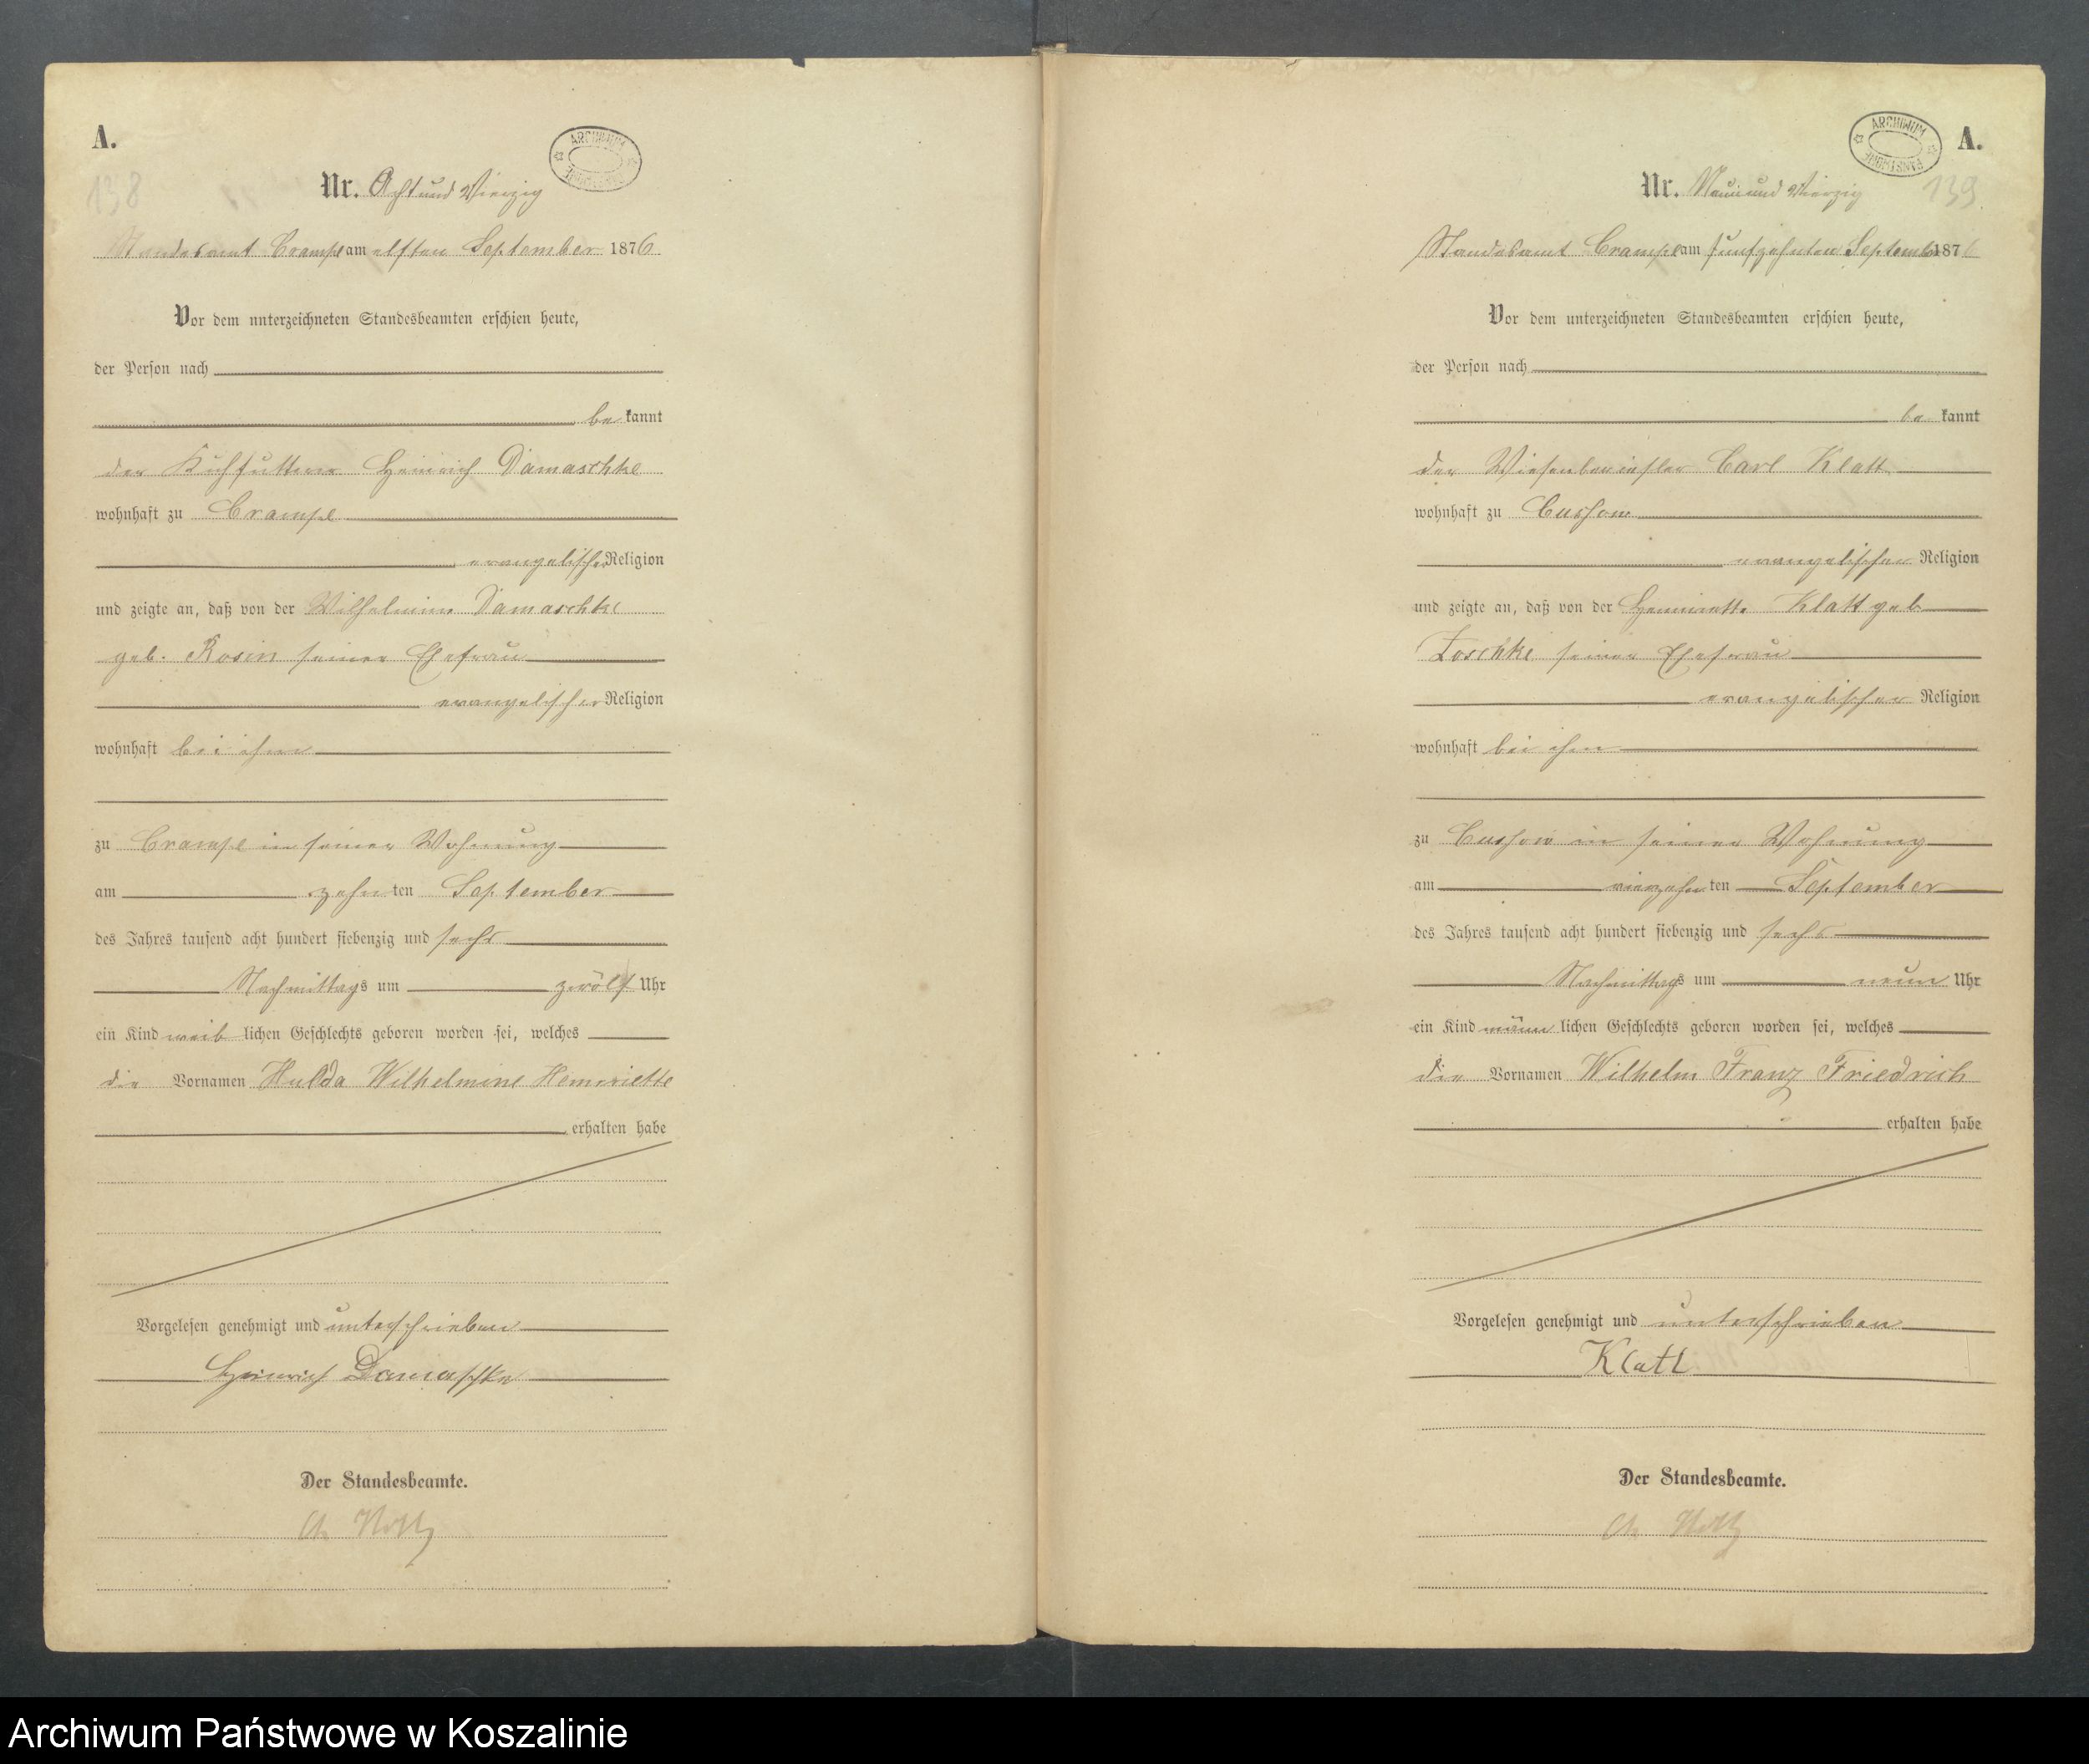 A.
138
ARCHIWUM
Nr. Acht und Vierzig
Standesamt Crampe am elften September 1876
Vor dem unterzeichneten Standesbeamten erschien heute,
der Person nach
be kannt
der Kuhfütterer Heinrich Damaschke
wohnhaft zu Crampe
evangelischer Religion
und zeigte an, daß von der Wilhelmine Damaschke
geb. Rosin seiner Ehefrau
evangelischer Religion
wohnhaft bei ihm
zu Crampe in seiner Wohnung
am zehn ten September
des Jahres tausend acht hundert siebenzig und sechs
Nachmittags um zwölf Uhr
ein Kind weib lichen Geschlechts geboren worden sei, welches
die Vornamen Hulda Wilhelmine Henriette
erhalten habe
Vorgelesen genehmigt und unterschrieben
Heinrich Damaschke
Der Standesbeamte.
A.
139
ARCHIWUM PAŃSTWOWE
Nr. Neun und Vierzig
Standesamt Crampe am funfzehnten September 1876
Vor dem unterzeichneten Standesbeamten erschien heute,
der Person nach
be kannt
der Carl Klatt
wohnhaft zu Cussow
evangelischer Religion
und zeigte an, daß von der Henriette Klatt geb
Zoschke seiner Ehefrau
evangelischer Religion
wohnhaft bei ihm
zu Cussow in seiner Wohnung
am vierzehn ten September
des Jahres tausend acht hundert siebenzig und sechs
Nachmittags um neun Uhr
ein Kind männ lichen Geschlechts geboren worden sei, welches
die Vornamen Wilhelm Franz Friedrich
erhalten habe
Vorgelesen genehmigt und unterschrieben
Klatt
Der Standesbeamte.
Archiwum Państwowe w Koszalinie